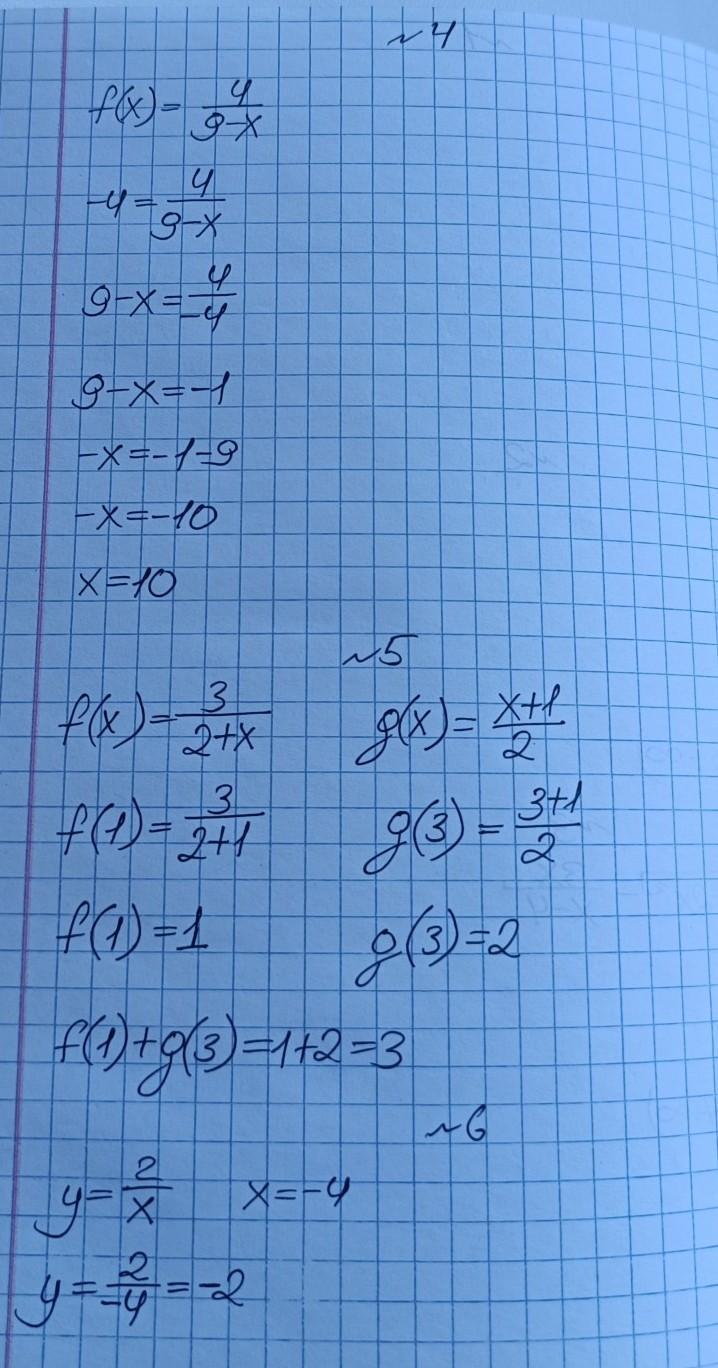 ~4
f(x)= 4/(9-x)
-4= 4/(9-x)
9-x= 4/-4
9-x=-1
-x=-1-9
-x=-10
x=10
~5
f(x)= 3/(2+x) g(x)= (x+1)/2
f(1)= 3/(2+1) g(3)= (3+1)/2
f(1)=1 g(3)=2
f(1)+g(3)=1+2=3
~6
y= 2/x x=-4
y= 2/-4 =-2